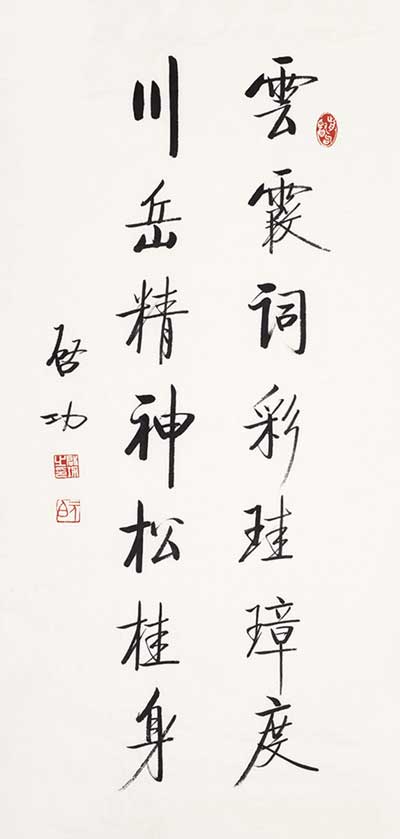 雲霞詞彩珪璋度
川岳精神松桂身
啓功
元白